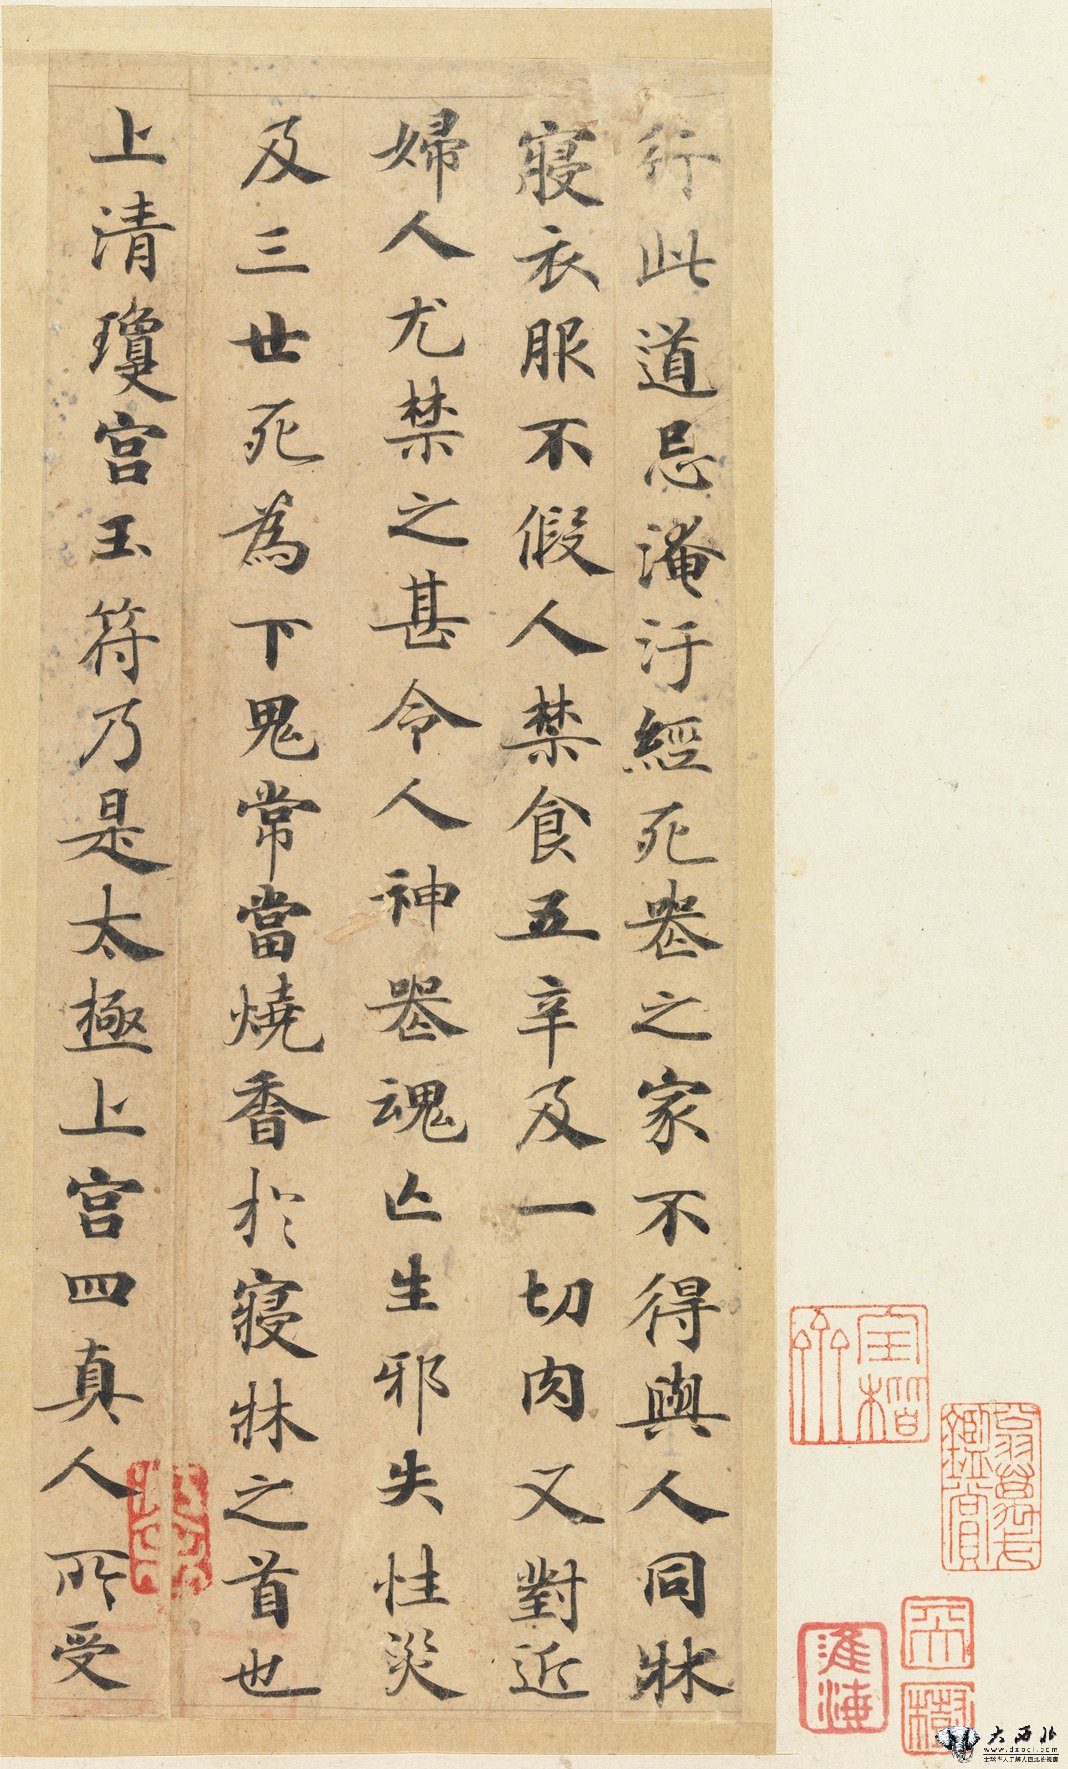 行此道忌淹汙經死喪之家不得與人同牀
寢衣服不假人禁食五辛及一切肉又對近
婦人尤禁之甚令人神喪魂亡生邪失性災
及三世死為下鬼常當燒香於寢牀之首也
上清瓊宮玉符乃是太極上宮四真人所受
翁萬戈鑑賞
淮海
大西北
www.dxbei.com